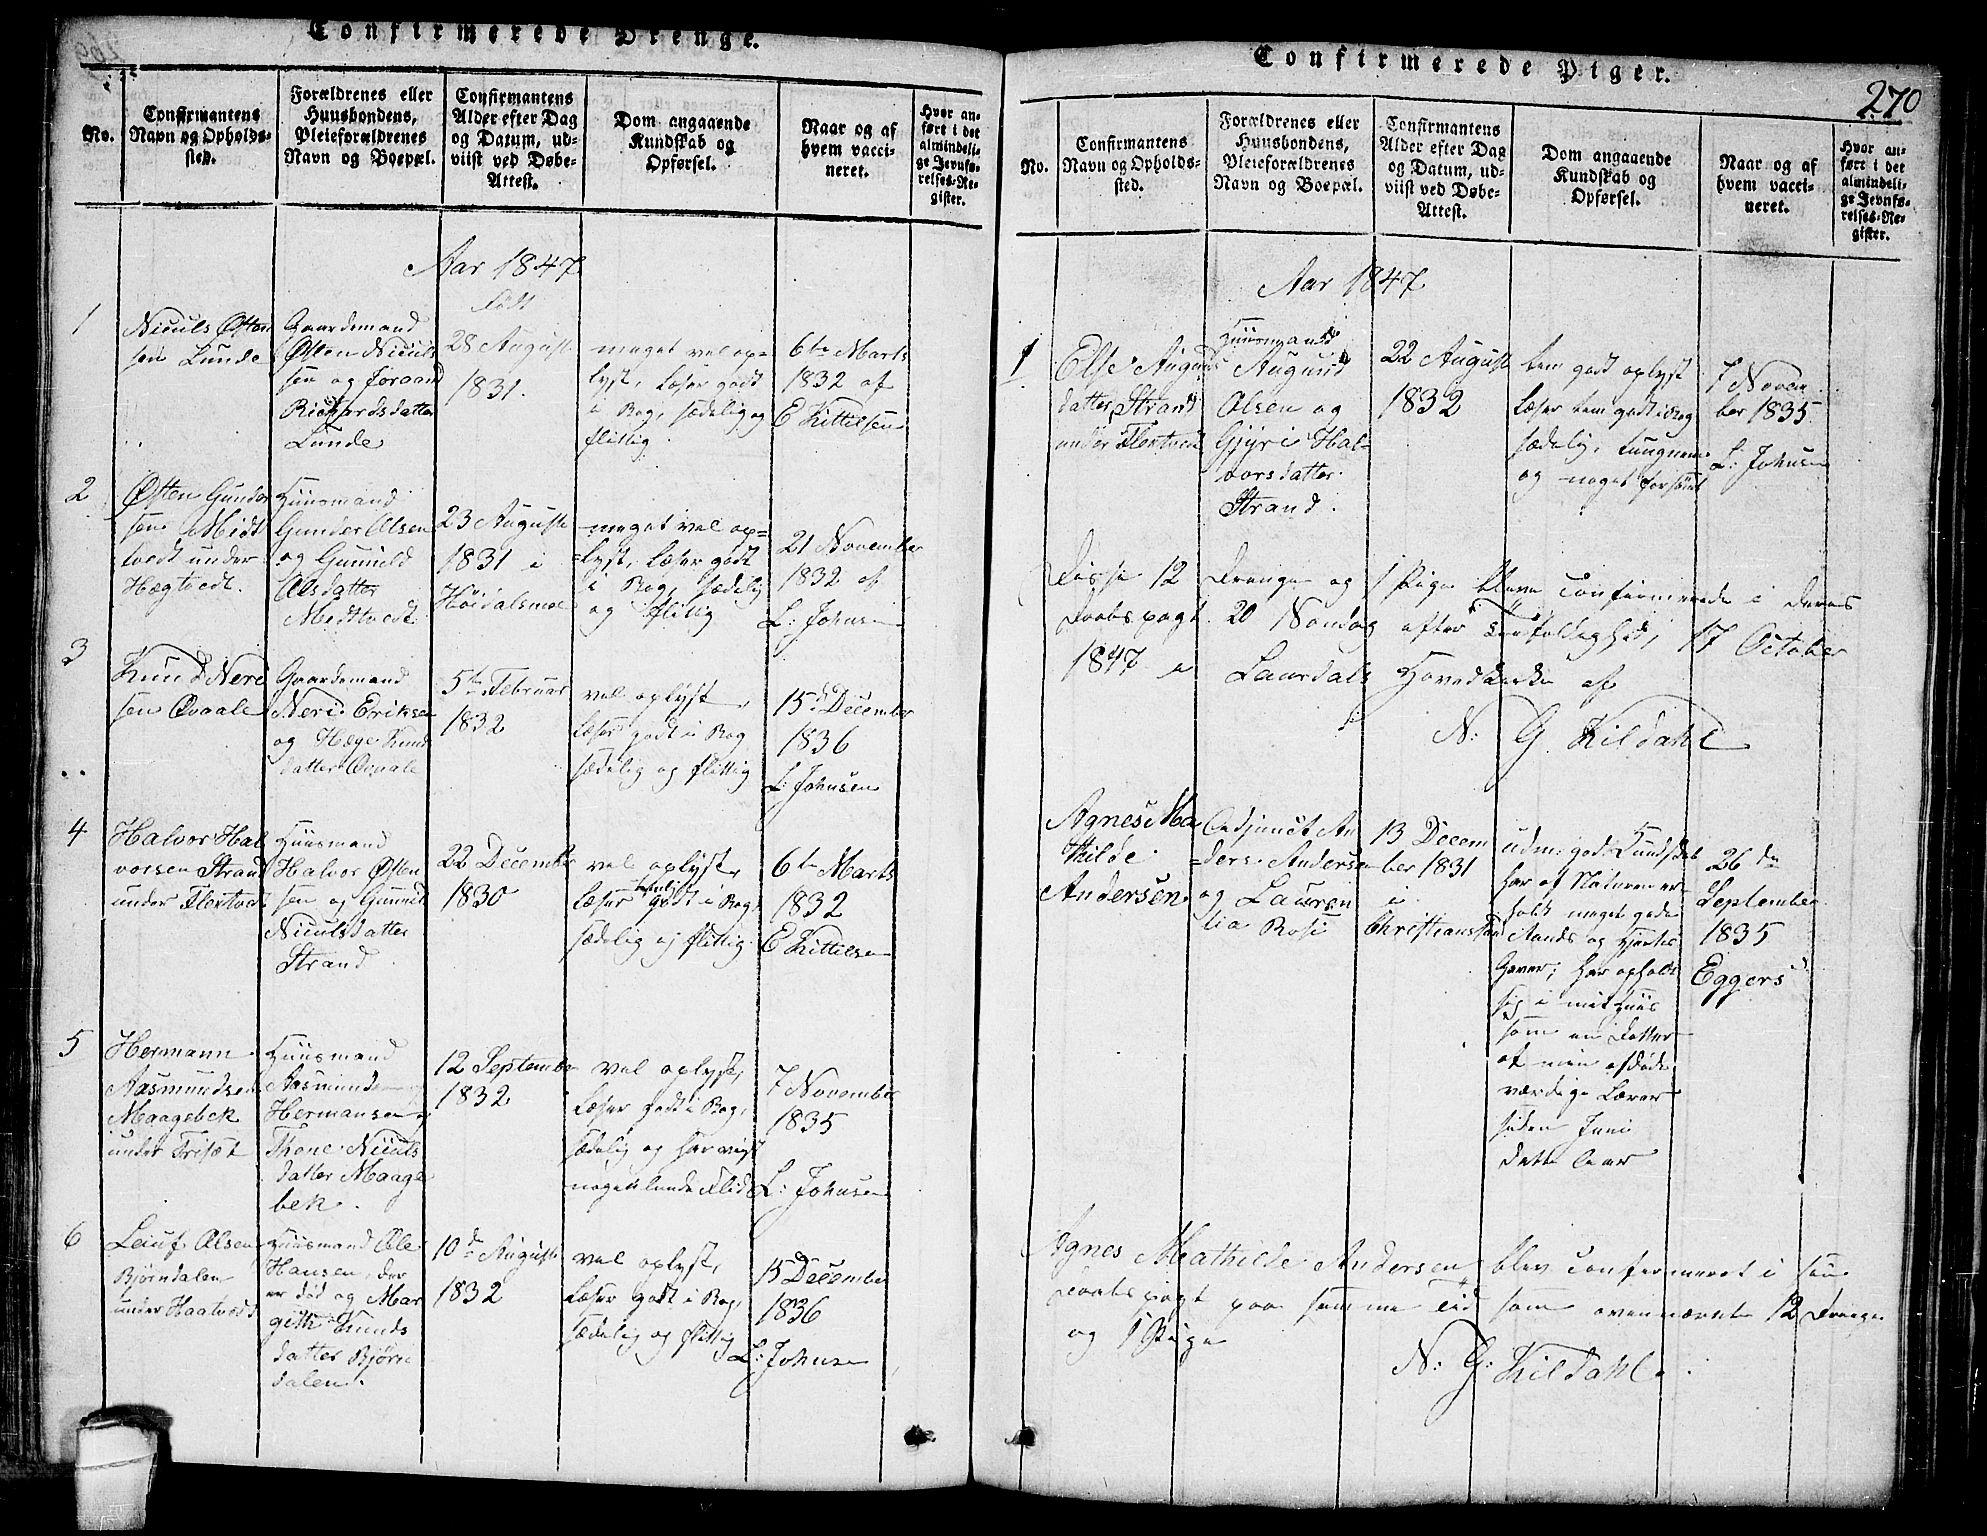 Confirmerede Drenge.
No.
Confirmantens
Navn og Opholds-
sted.
Forældrenes eller
Huusbondens,
Pleieforældrenes
Navn og Boepæl.
Confirmantens
Alder efter Dag
og Datum, ud-
viist ved Døbe-
Attest.
Dom angaaende
Kundskab og
Opførsel.
Naar og af
hvem vacci-
neret.
Hvor an-
ført i det
almindeli-
ge Jevnfø-
relses-Re-
gister.
Aar 1847
Født
1
Niculs Østen
sen Lunde
Gaardemand
Østen Niculs
sen og Joraand
Richardsdatter
Lunde
28 August
1831.
meget vel op=
lyst, læser godt
i Bog, sædelig og
flittig
6te Marts
1832 af
E Kittelsen
2
Østen Gunder
sen Midt
tvedt under
Hægtvedt.
Huusmand
Gunder Olsen
og Gunnild
Olsdatter
Midttvedt
23 August
1831 i
Hoidalsmoe
meget vel op=
=lyst, læser godt
i Bog, sædelig
og flittig
21 November
1832 af
L: Johnsen
3
Knud Neri
sen Ovaale
Gaardemand
Neri Eriksen
og Hæge Knud
datter Ovaale
5te Februar
1832
vel oplyst,
læser godt i Bog
sædelig og flittig
15de December
1836
L: Johnsen
4
Halvor Hal
vorsen Strand
under Flertvedt
Huusmand
Halvor Østen
sen og Gunnild
Niculsdatter
Strand
22 December
1830
vel oplyst,
læser godt i Bog,
sædelig og flittig
6te Marts
1832
E Kittilsen
5
Hermann
Aasmundsen
Maagebek
under Trisæt
Huusmand
Aasmund
Hermansen og
Thone Niculs
datter Maage
bek.
12 September
1832
vel oplyst,
læser godt i Bog,
sædelig og har viist
nogenlunde Flid
7 November
1835
L: Johnsen
6
Leiuf Olsen
Bjørndalen
under Haatvedt
Huusmand Ole
Hansen, der
er død og Mar
gith Knuds
datter Bjørn
dalen.
10de August
1832
vel oplyst,
læser godt i Bog,
sædelig og flittig
15 December
1836
L: Johnsen
Confirmerede Piger.
270
No.
Confirmantens
Navn og Opholds-
sted.
Forældrenes eller
Huusbondens,
Pleieforældrenes
Navn og Boepæl.
Confirmantens
Alder efter Dag
og Datum, ud-
viist ved Døbe-
Attest.
Dom angaaende
Kundskab og
Opførsel.
Naar og af
hvem vacci-
neret.
Hvor an-
ført i det
almindeli-
ge Jevnfø-
relses-Re-
gister.
Aar 1847
1
Else Augunds
datter Strand
under Flertvedt
Huusmand
Augund
Olsen og
Gjyri Hal-
vorsdatter
Strand.
22 August
1832
tem godt oplyst
læser tem godt i Bog
sædelig, tungnem
og noget forsømt
7 Novem
ber 1835.
L: Johnsen
Disse 12 Drenge og 1 Pige bleve confirmerede i deres
Daabspagt 20 Søndag efter Trefoldighed, 17 October
1847 i Laurdals Hovedkirke af
N: G. Kildahl
Agnes Ma
thilde
Andersen
Adjunct An
=ders Andersen
og Lauren
tia Rosi
13 Decem
ber 1831
i
Christianssand
udm: god Kundskab
har af Naturen er-
holdt meget gode
Aands og Hjertes
Gaver; har opholdt
sig i mit Huus
som en Datter
af min afdøde
værdige Lærer
siden Juni
dette Aar
26de
September
1835
Eggers
Agnes Mathilde Andersen blev confirmeret i sin
Daabspagt paa samme Tid som ovennævnte 12 Drenge
og 1 Pige
N: G: Kildahl.